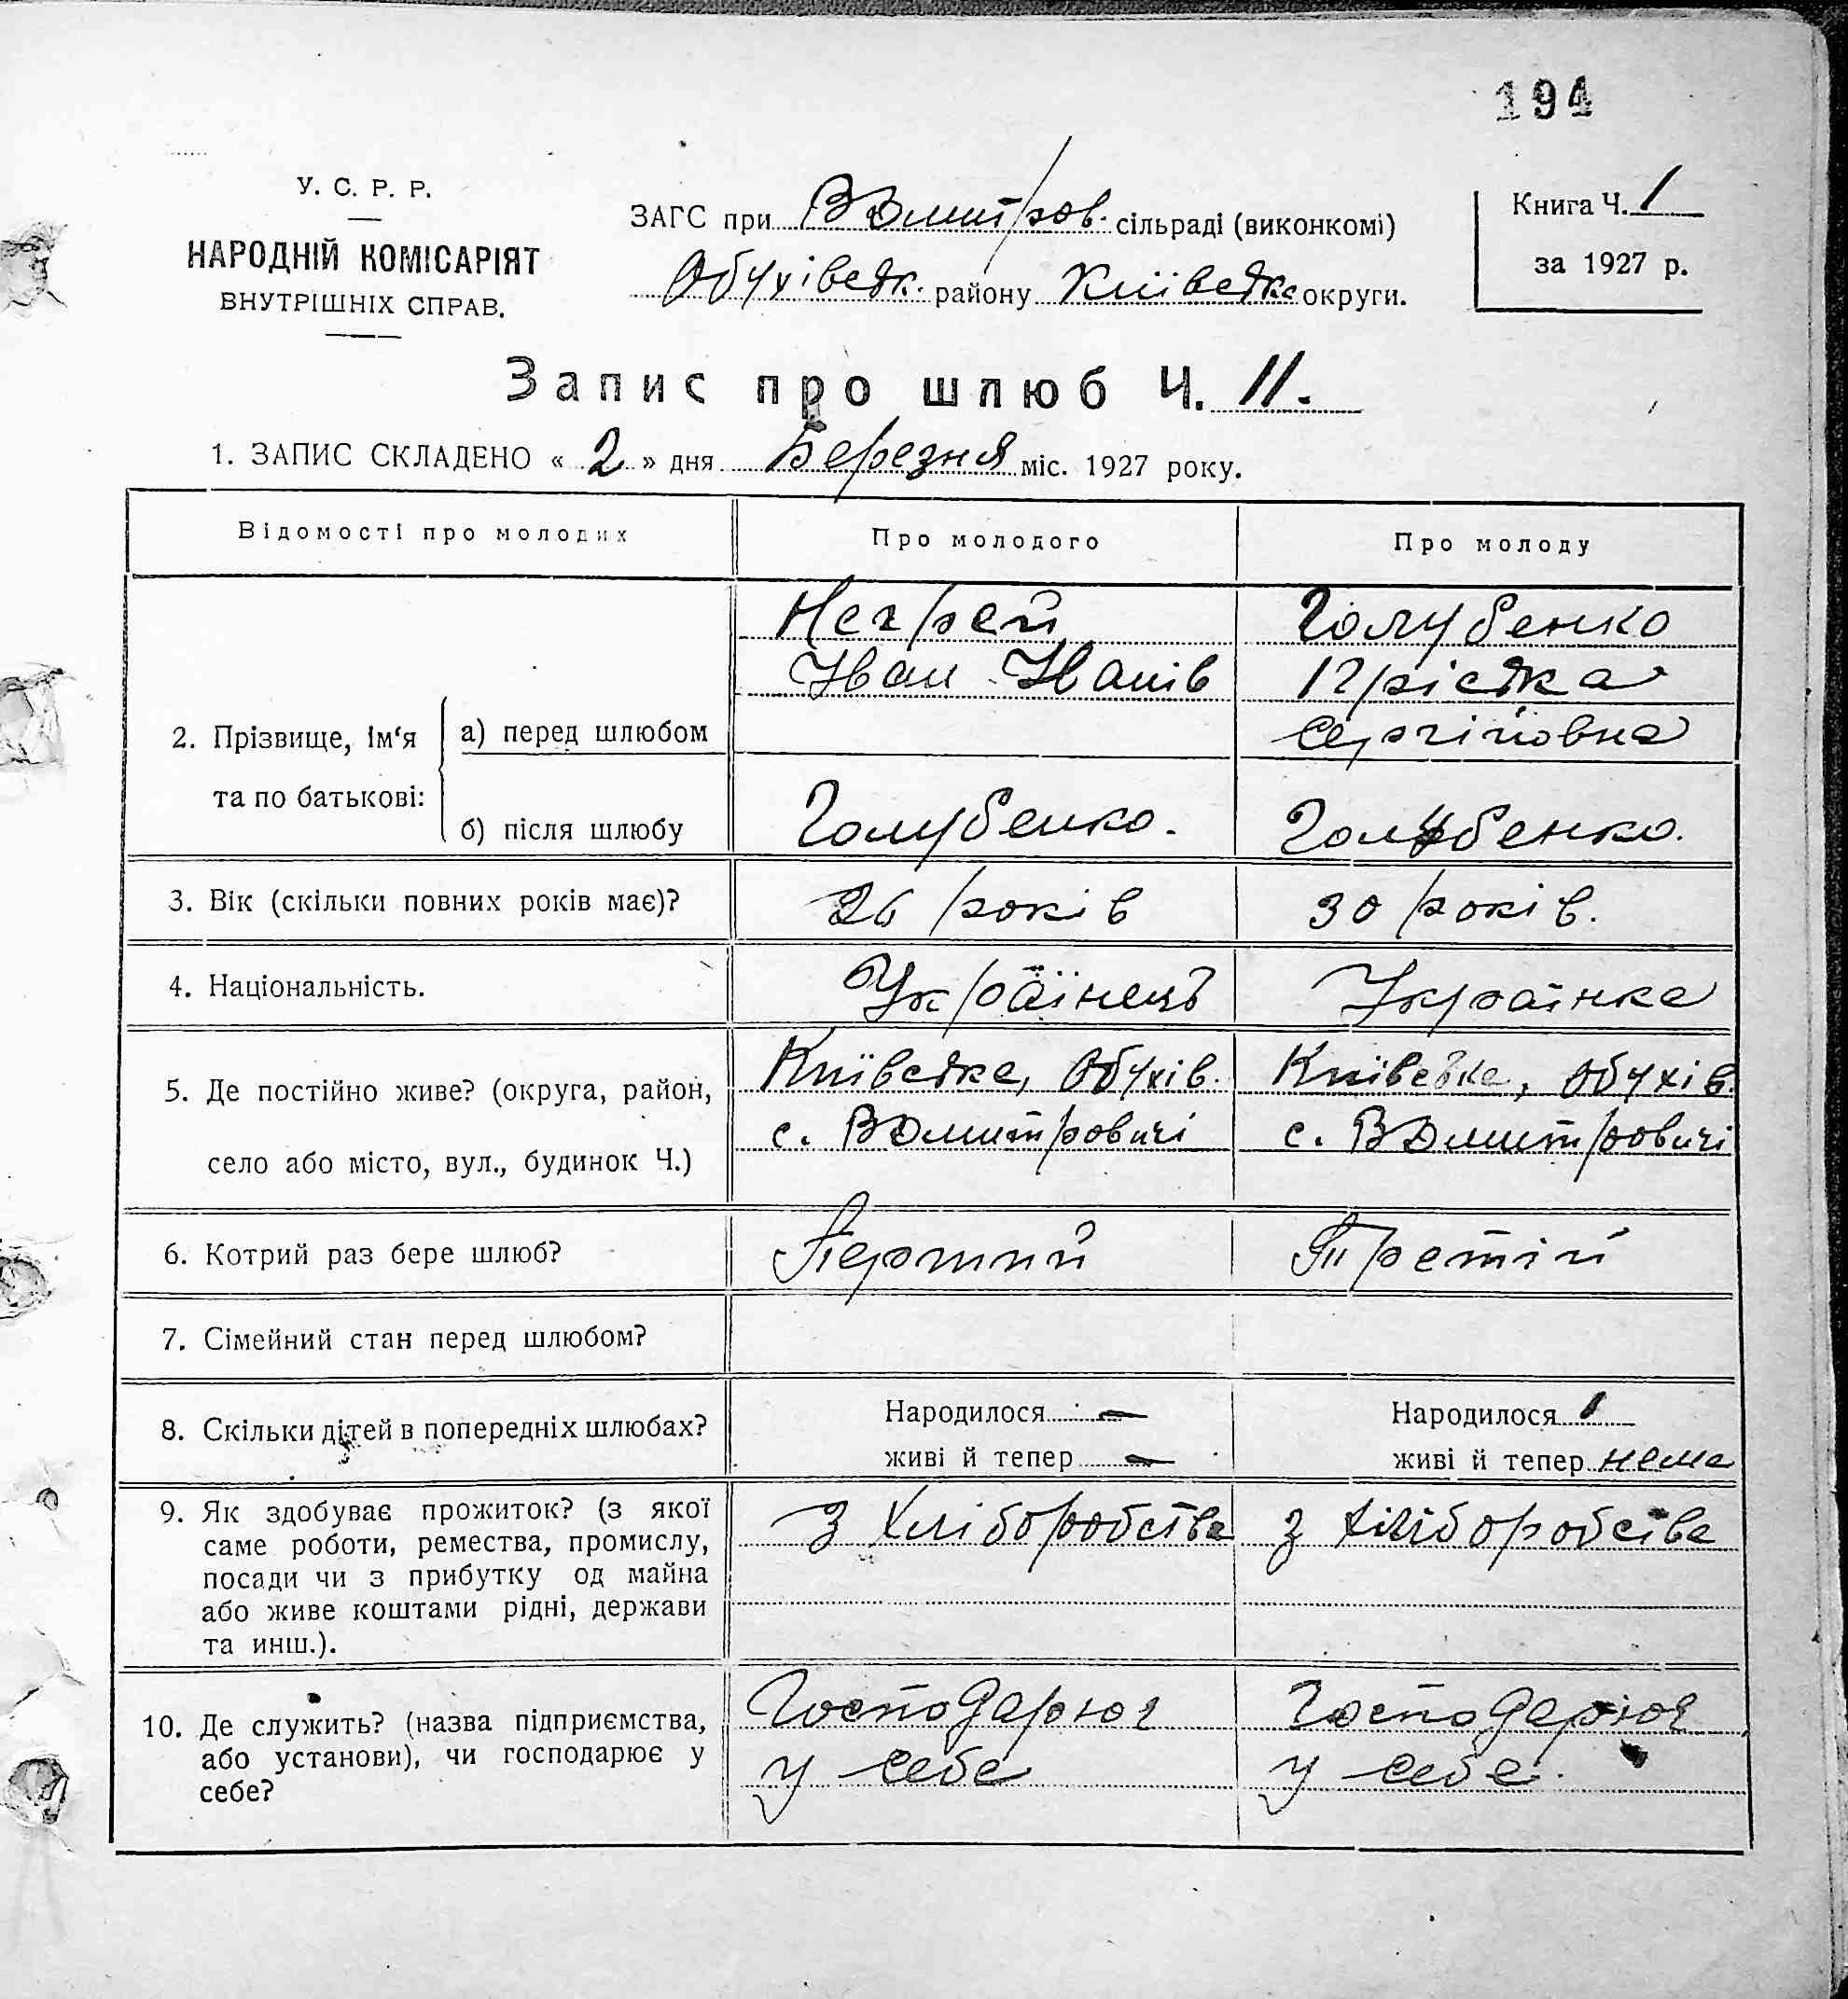 194
У. С. Р. Р.
НАРОДНІЙ КОМІСАРІЯТ
ВНУТРІШНІХ СПРАВ.
ЗАГС при ВДмитров. сільраді (виконкомі)
Обухівськ. району Київська округи.
Книга Ч. 1
за 1927 р.
Запис про шлюб Ч. 11.
1. ЗАПИС СКЛАДЕНО « 2 » дня Березня міс. 1927 року.
Відомості про молодих Про молодого Про молоду
2. Прізвище, ім‘я та по батькові:
а) перед шлюбом
Негрей
Іван Іванів
Голубенко
Пріська
Сергійовна
б) після шлюбу Голубенко. Голубенко.
3. Вік (скільки повних років має)? 26 років 30 років.
4. Національність. Українець Українка
5. Де постійно живе? (округа, район,
село або місто, вул., будинок Ч.)
Київська, Обухів.
с. ВДмитровичі
Київська, Обухів.
с. ВДмитровичі
6. Котрий раз бере шлюб? Перший Третій
7. Сімейний стан перед шлюбом?
8. Скільки дітей в попередніх шлюбах?
Народилося —
живі й тепер —
Народилося 1
живі й тепер нема
9. Як здобуває прожиток? (з якої
саме роботи, ремества, промислу,
посади чи з прибутку од майна
або живе коштами рідні, держави
та инш.).
З Хліборобства
з хліборобства
10. Де служить? (назва підприємства,
або установи), чи господарює у
себе?
Господарює
у себе
Господарює
у себе.